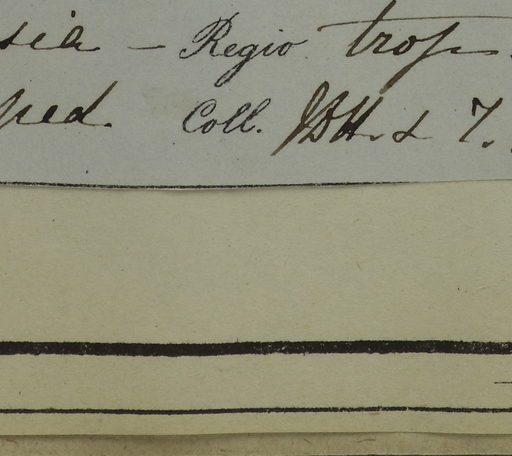 sia – Regio trop.
ped. Coll. JDH. & T.